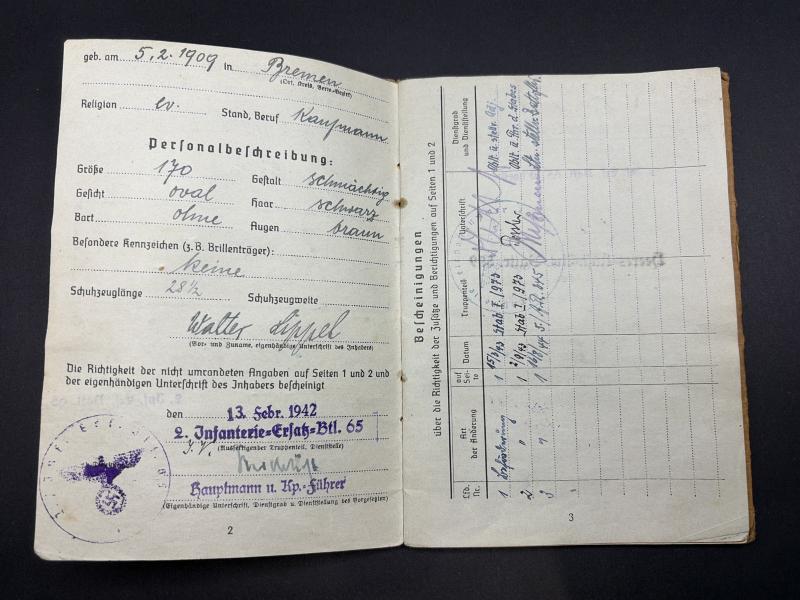 geb. am 5.2.1909 in Bremen
(Ort, Kreis, Verw.-Bezirk)
Religion ev. Stand, Beruf Kaufmann
Personalbeschreibung:
Größe 170 Gestalt schmächtig
Gesicht oval Haar schwarz
Bart ohne Augen braun
Besondere Kennzeichen (z.B. Brillenträger):
keine
Schuhzeuglänge 28½ Schuhzeugweite
Walter Lippel
(Vor- und Zuname, eigenhändige Unterschrift des Inhabers)
Die Richtigkeit der nicht umrandeten Angaben auf Seiten 1 und 2 und
der eigenhändigen Unterschrift des Inhabers bescheinigt
den 13. Febr. 1942
2. Infanterie-Ersatz-Btl. 65
(Ausfertigender Truppenteil, Dienststelle)
I.V.
Hauptmann u. Kp.-Führer
(Eigenhändige Unterschrift, Dienstgrad u. Dienststellung des Vorgesetzten)
2
Bescheinigungen
über die Richtigkeit der Zusätze und Berichtigungen auf Seiten 1 und 2
Lfd. Nr. Art der Änderung auf Seite Datum Truppenteil Unterschrift Dienstgrad und Dienststellung
1 Beförderung 1 15/3/43 Stab I./973
2 " 1 2/9/43 Stab I./973
3 " 1
3